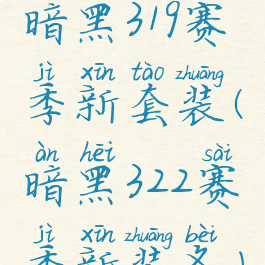 暗黑319赛
jì xīn tào zhuāng
季新套装(
àn hēi sài
暗黑322赛
jì xīn zhuāng bèi
季新装备)